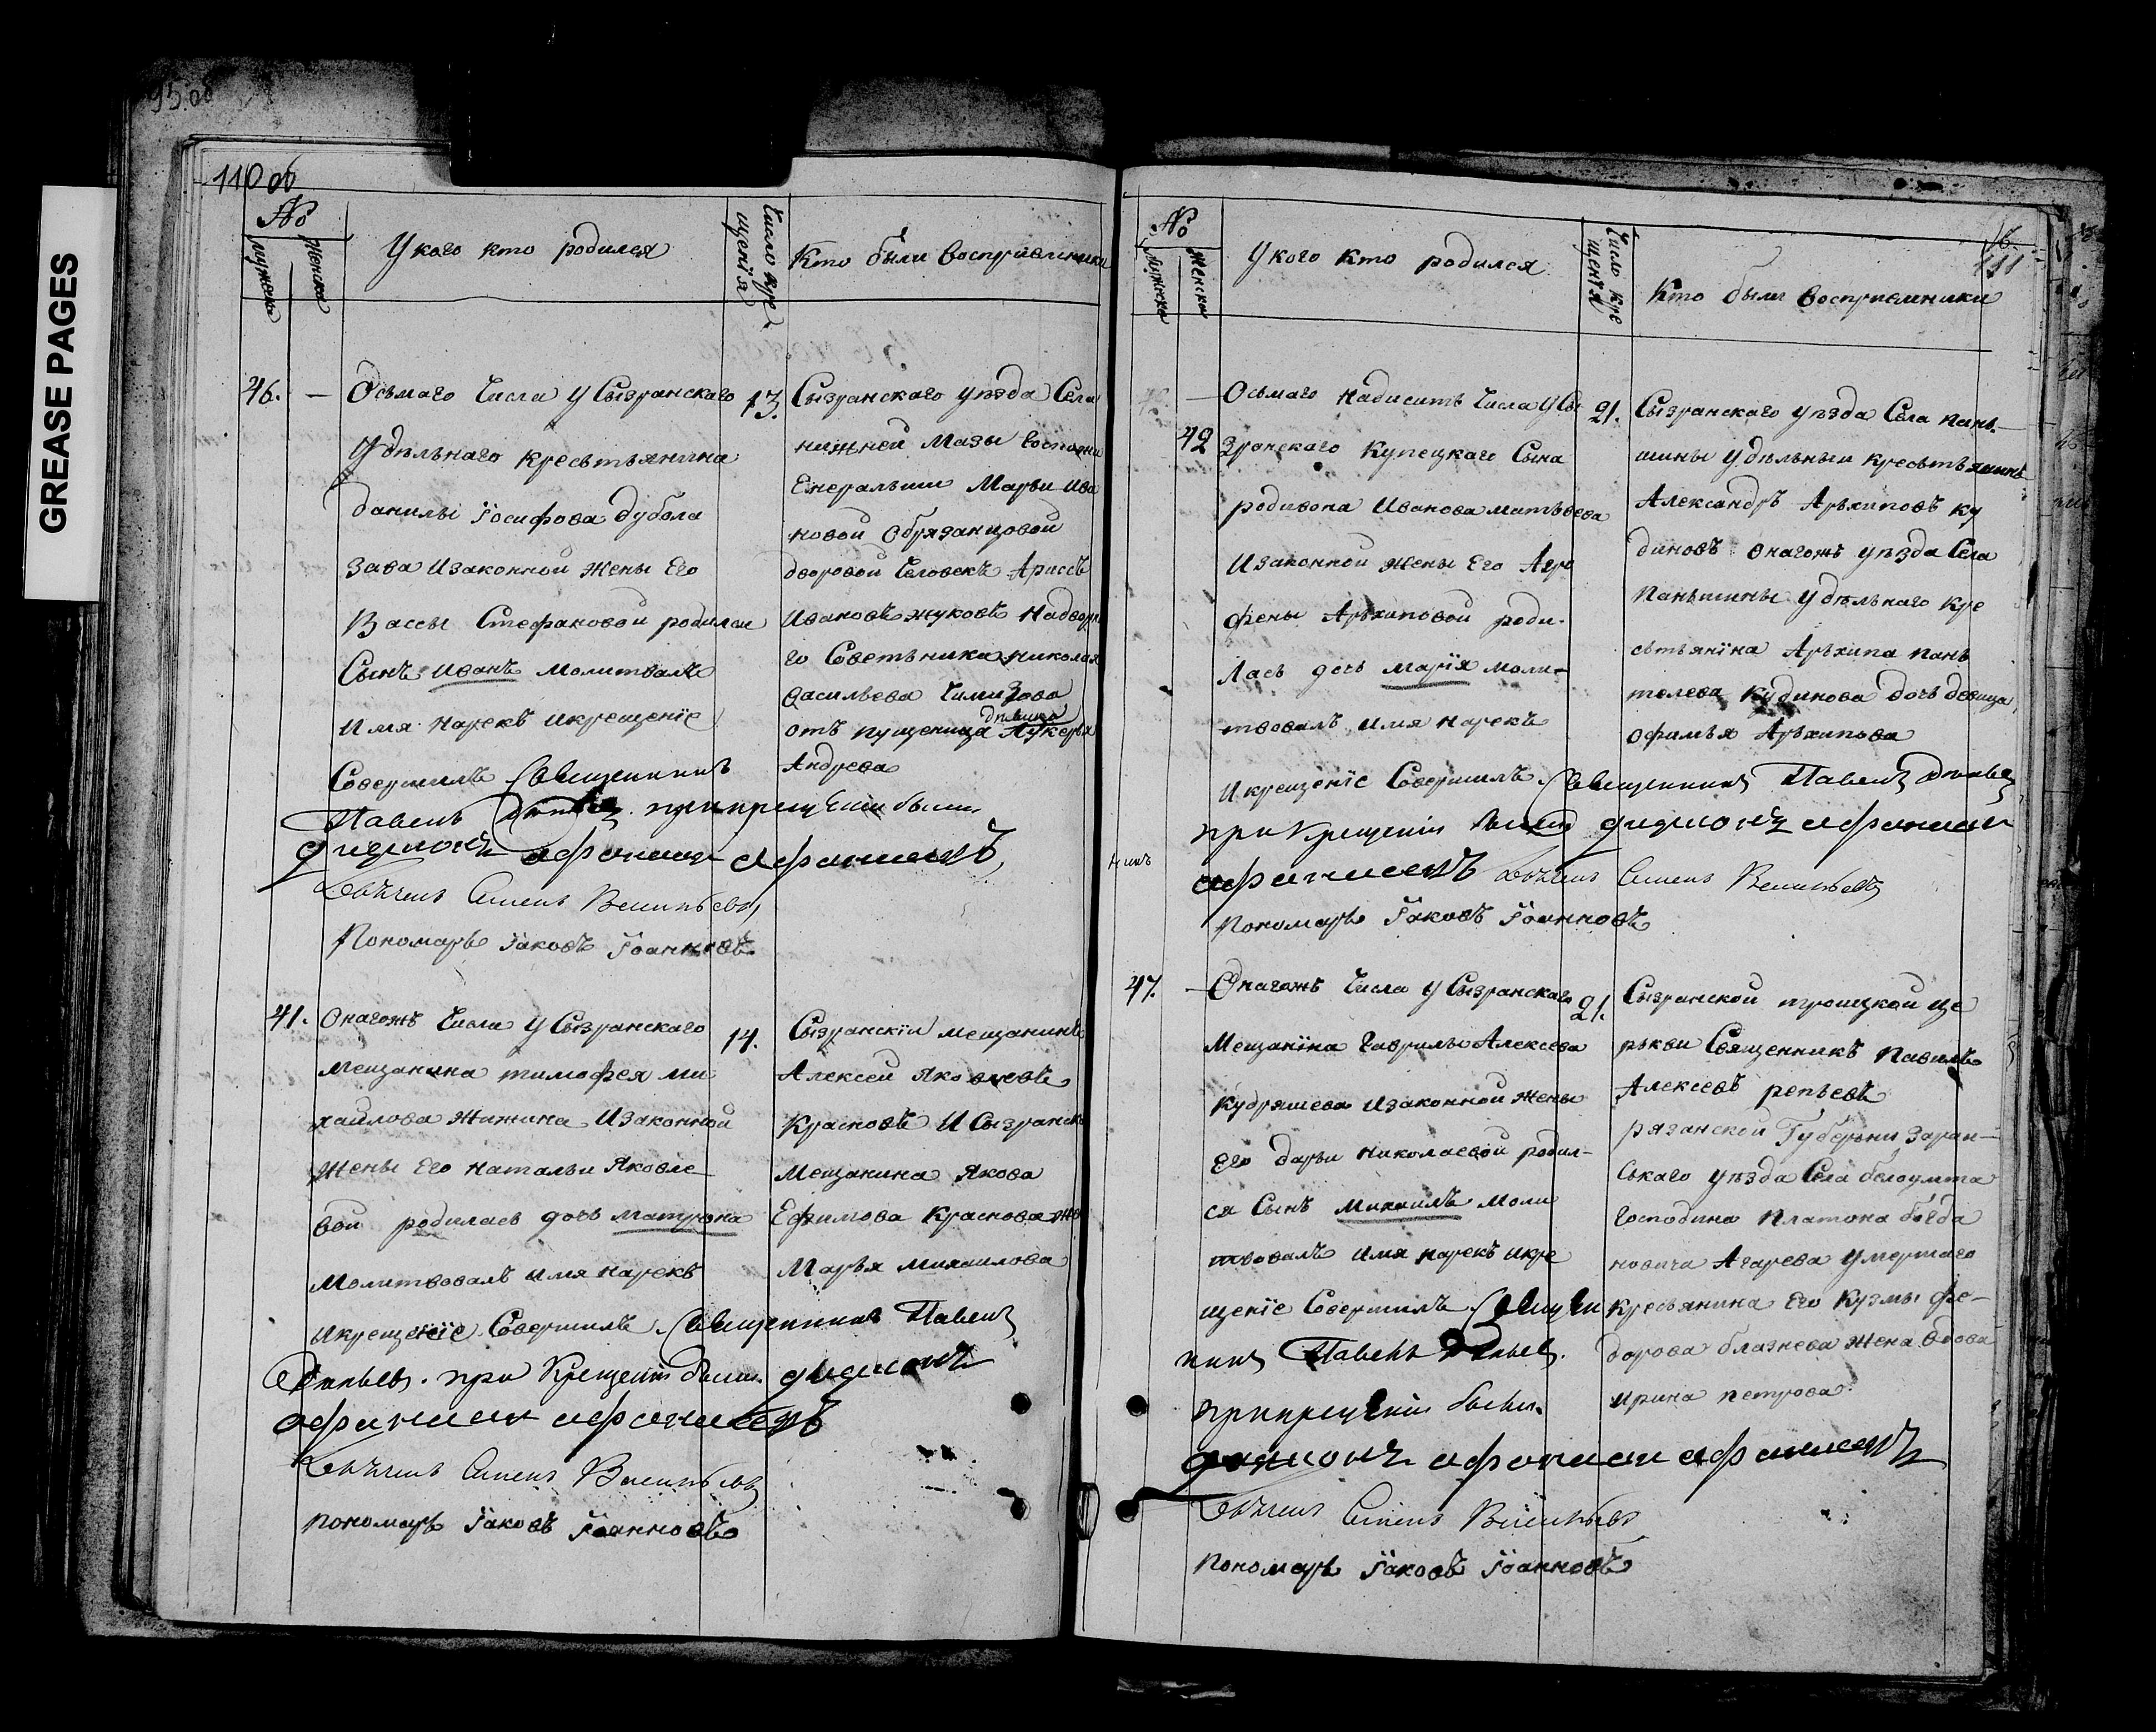 GREASE PAGES
95.об
110 об
№
Мужеска
Женска
У кого кто родился
Число кре
щенїя
Кто были восприемники
46. — Осьмаго Числа у Сызранскаго
Удѣльнаго крестьянина
Данилы Іосифова Дубола
зава Изаконной жены Его
Вассы Стефановой родился
Сынъ Иванъ Молитвалъ
Имя нарекъ икрещенїе
Совершилъ Священникъ
Павелъ при крещенїи были
диаконъ
Дьячекъ Симеонъ Васильевъ
Пономарь Їаковъ Їоанновъ
13.
Сызранскаго уѣзда Села
нижней Мазы Госпожи
Енеральши Марьи Ива
новой Обрязанцовой
дворовой Человекъ
Ивановъ жуковъ Надворн
го Советника Николая
Васильева
девица
отъ пущеница Лукерья
Андрева
41. Онагожъ Числа у Сызранскаго
мещанина тимофея ми
хайлова Жижина Изаконной
жены Его натальи Яковле
вой родилась дочь матрона
Молитвовалъ имя нарекъ
икрещенїе Совершилъ Священникъ Павелъ
при Крещенїи были диаконъ
Дьячекъ Симеонъ Васильевъ
пономарь Їаковъ Їоанновъ
14.
Сызранскїи мещанинъ
Алексей Яковлевъ
Красновъ И Сызранск
Мещанина Якова
Ефимова Краснова же
Марья михаилова
№
Мужеска
Женска
У кого кто родился
Число кре
щенїя
Кто были восприемники
111
42
— Осьмаго надисить Числа у Сы
зранскаго Купецкаго Сына
родивона Иванова матвѣева
Изаконной жены Его Агро
фены Архиповой роди-
лась дочь марїя моли-
твовалъ имя нарекъ
икрещенїе Совершилъ Священникъ Павелъ
при Крещенїи были диаконъ
Дьячекъ Симеонъ Васильевъ
пономарь Їаковъ Їоанновъ
21.
Сызранскаго уѣзда Села пань-
шины удѣльныи крестьянинъ
Александръ Архиповъ ку
диновъ Онагожъ уѣзда Села
Паньшины удѣльнаго кре
стьянїна Архипа пань
телева Кудинова дочь девица
офимья Архипова
47. — Онагожъ Числа у Сызранскаго
Мещанїна Гаврилы Алексеева
Кудряшева изаконной жены
Его дарьи николаевой родил-
ся Сынъ михаилъ моли
твовалъ имя нарекъ икре
щенїе Совершилъ Священ
никъ Павелъ
при крещенїи были
диаконъ
Дьячекъ Симеонъ Васильевъ
пономарь Їаковъ Їоанновъ
21.
Сызранской троицкой це
ркви Священникъ Павилъ
Алексевъ репьевъ
рязанской Губерни Заран-
скаго уѣзда Села белоумта
Господина Платона богда
новича Агарева умершаго
кресьянина Его Кузмы фе-
дорова блазнева жена вдова
ирина петрова